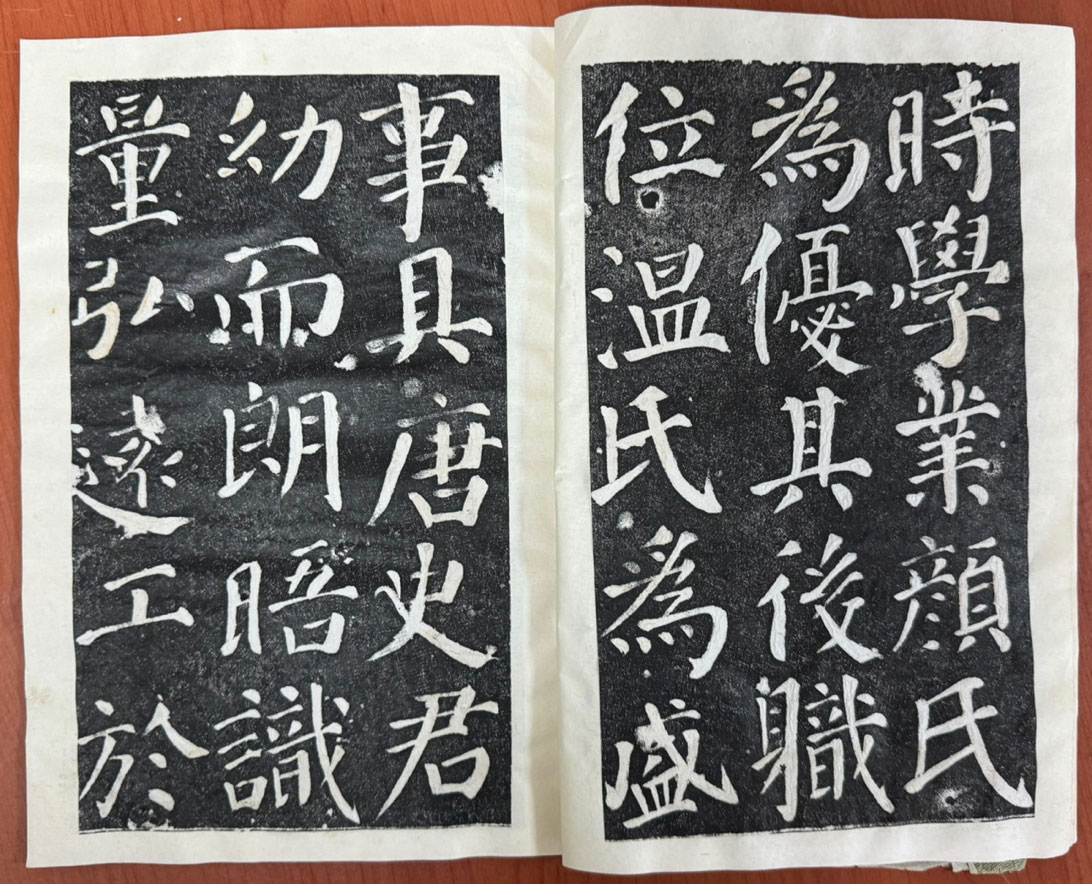 時學業顔氏
為優其後職
位温氏為盛
事具唐史君
幼而朗晤識
量弘遠工於